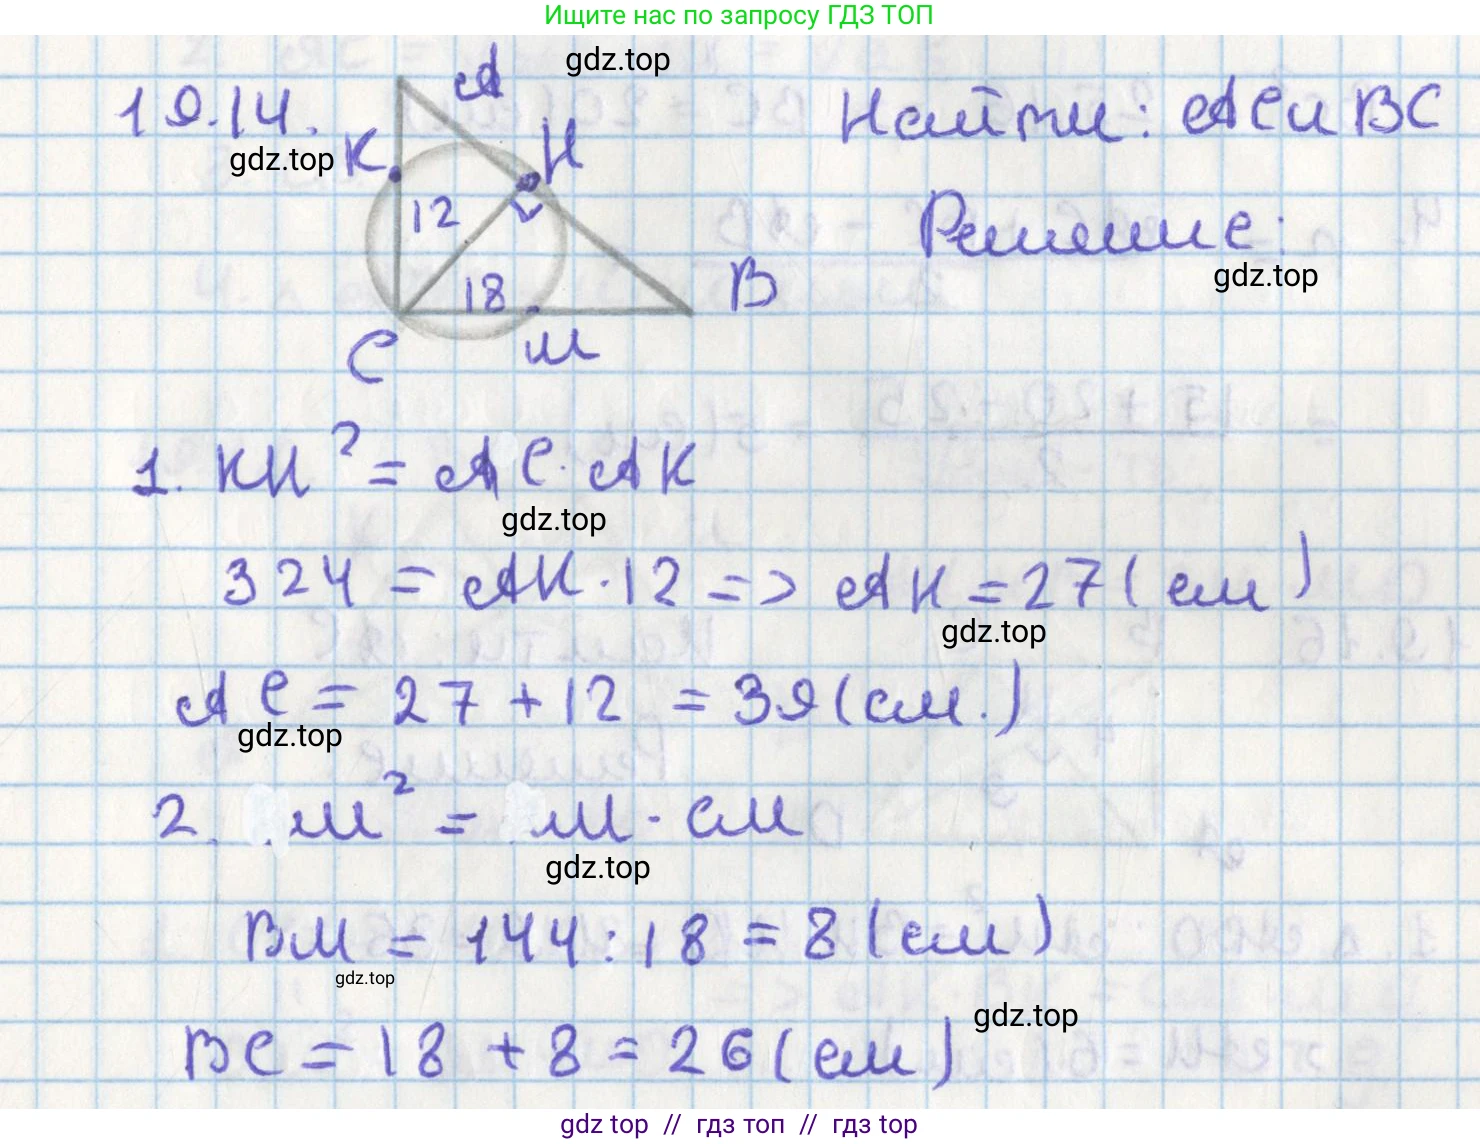 Ищите нас по запросу ГДЗ ТОП
gdz.top
19.14.
gdz.top
A
K
H
12
18
C
M
B
Найти: AC и BC
Решение:
gdz.top
1. KH² = AC · AK
gdz.top
324 = AK · 12 => AK = 27 (см)
gdz.top
AC = 27 + 12 = 39 (см.)
gdz.top
2. м² = м · см
gdz.top
BM = 144 : 18 = 8 (см)
gdz.top
BC = 18 + 8 = 26 (см)
gdz.top
gdz top // гдз топ // гдз top